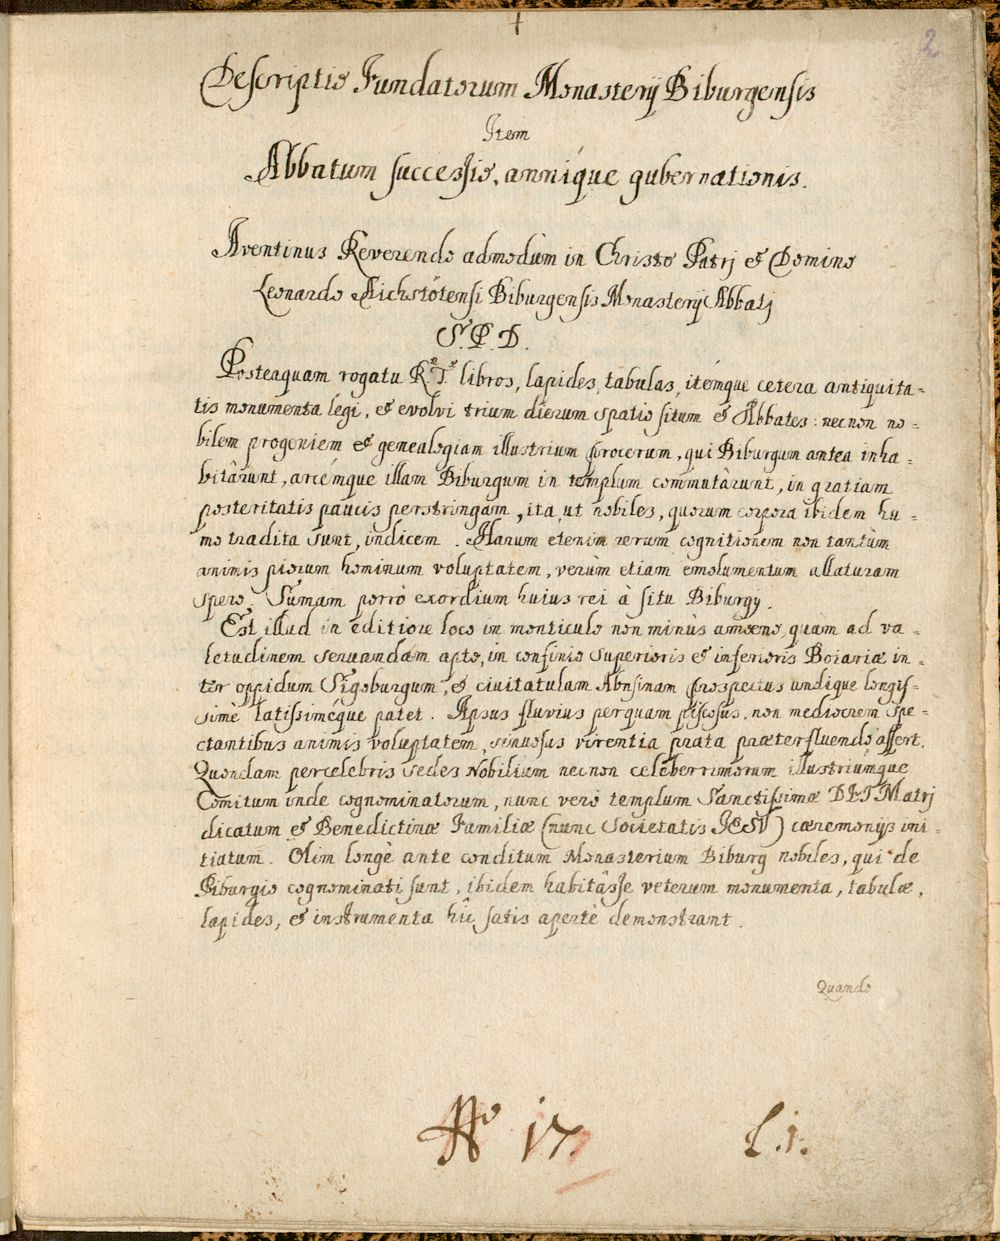 2
Descriptio Fundatorum Monasterij Biburgensis
Item
Abbatum successio, anníque gubernationis.
Aventinus Reverendo admodùm in Christo Patrj et Domino
Leonardo Aichstötensi Biburgensis Monasterij Abbatj
S. P. D.
Posteaquam rogatu R.ae T.ae libros, lapides, tabulas, itémque cetera antiquita-
tis monumenta legi, et evolvi trium dierum spatio situm et Abbates: necnon no-
bilem progeniem et genealogiam illustrium procerum, qui Biburgum antea inha-
bitârunt, arcémque illam Biburgum in templum commutârunt, in gratiam
posteritatis paucis perstringam, ita, ut nobiles, quorum corpora ibidem hu-
mo tradita sunt, indicem. Harum etenim rerum cognitionem non tantùm
animis piorum hominum voluptatem, verùm etiam emolumentum allaturam
spero. Sumam porrò exordium huius rei a situ Biburgj.
Est illud in editiore loco in monticulo non minùs amoeno, quàm ad va-
letudinem servandam apto, in confinio superioris et inferioris Boiariæ in-
ter oppidum Sigoburgum, et civitatulam Abnsinam prospectus undique longis-
simè latissiméque patet. Apsus fluvius perquam piscosus, non mediocrem spe-
ctantibus animis voluptatem, sinuosus virentia prata præterfluendo affert.
Quondam percelebris sedes Nobilium necnon celeberrimorum illustriúmque
Comitum inde cognominatorum, nunc verò templum Sanctissimæ DEI Matrj
dicatum et Benedictinæ Familiæ (nunc Societatis JESV) cæremonijs ini-
tiatum. Olim longè ante conditum Monasterium Biburg nobiles, qui de
Biburgio cognominati sunt, ibidem habitâsse veterum monumenta, tabulæ,
lapides, et instrumenta hîc satis apertè demonstrant.
Quando
No 17.
L.1.